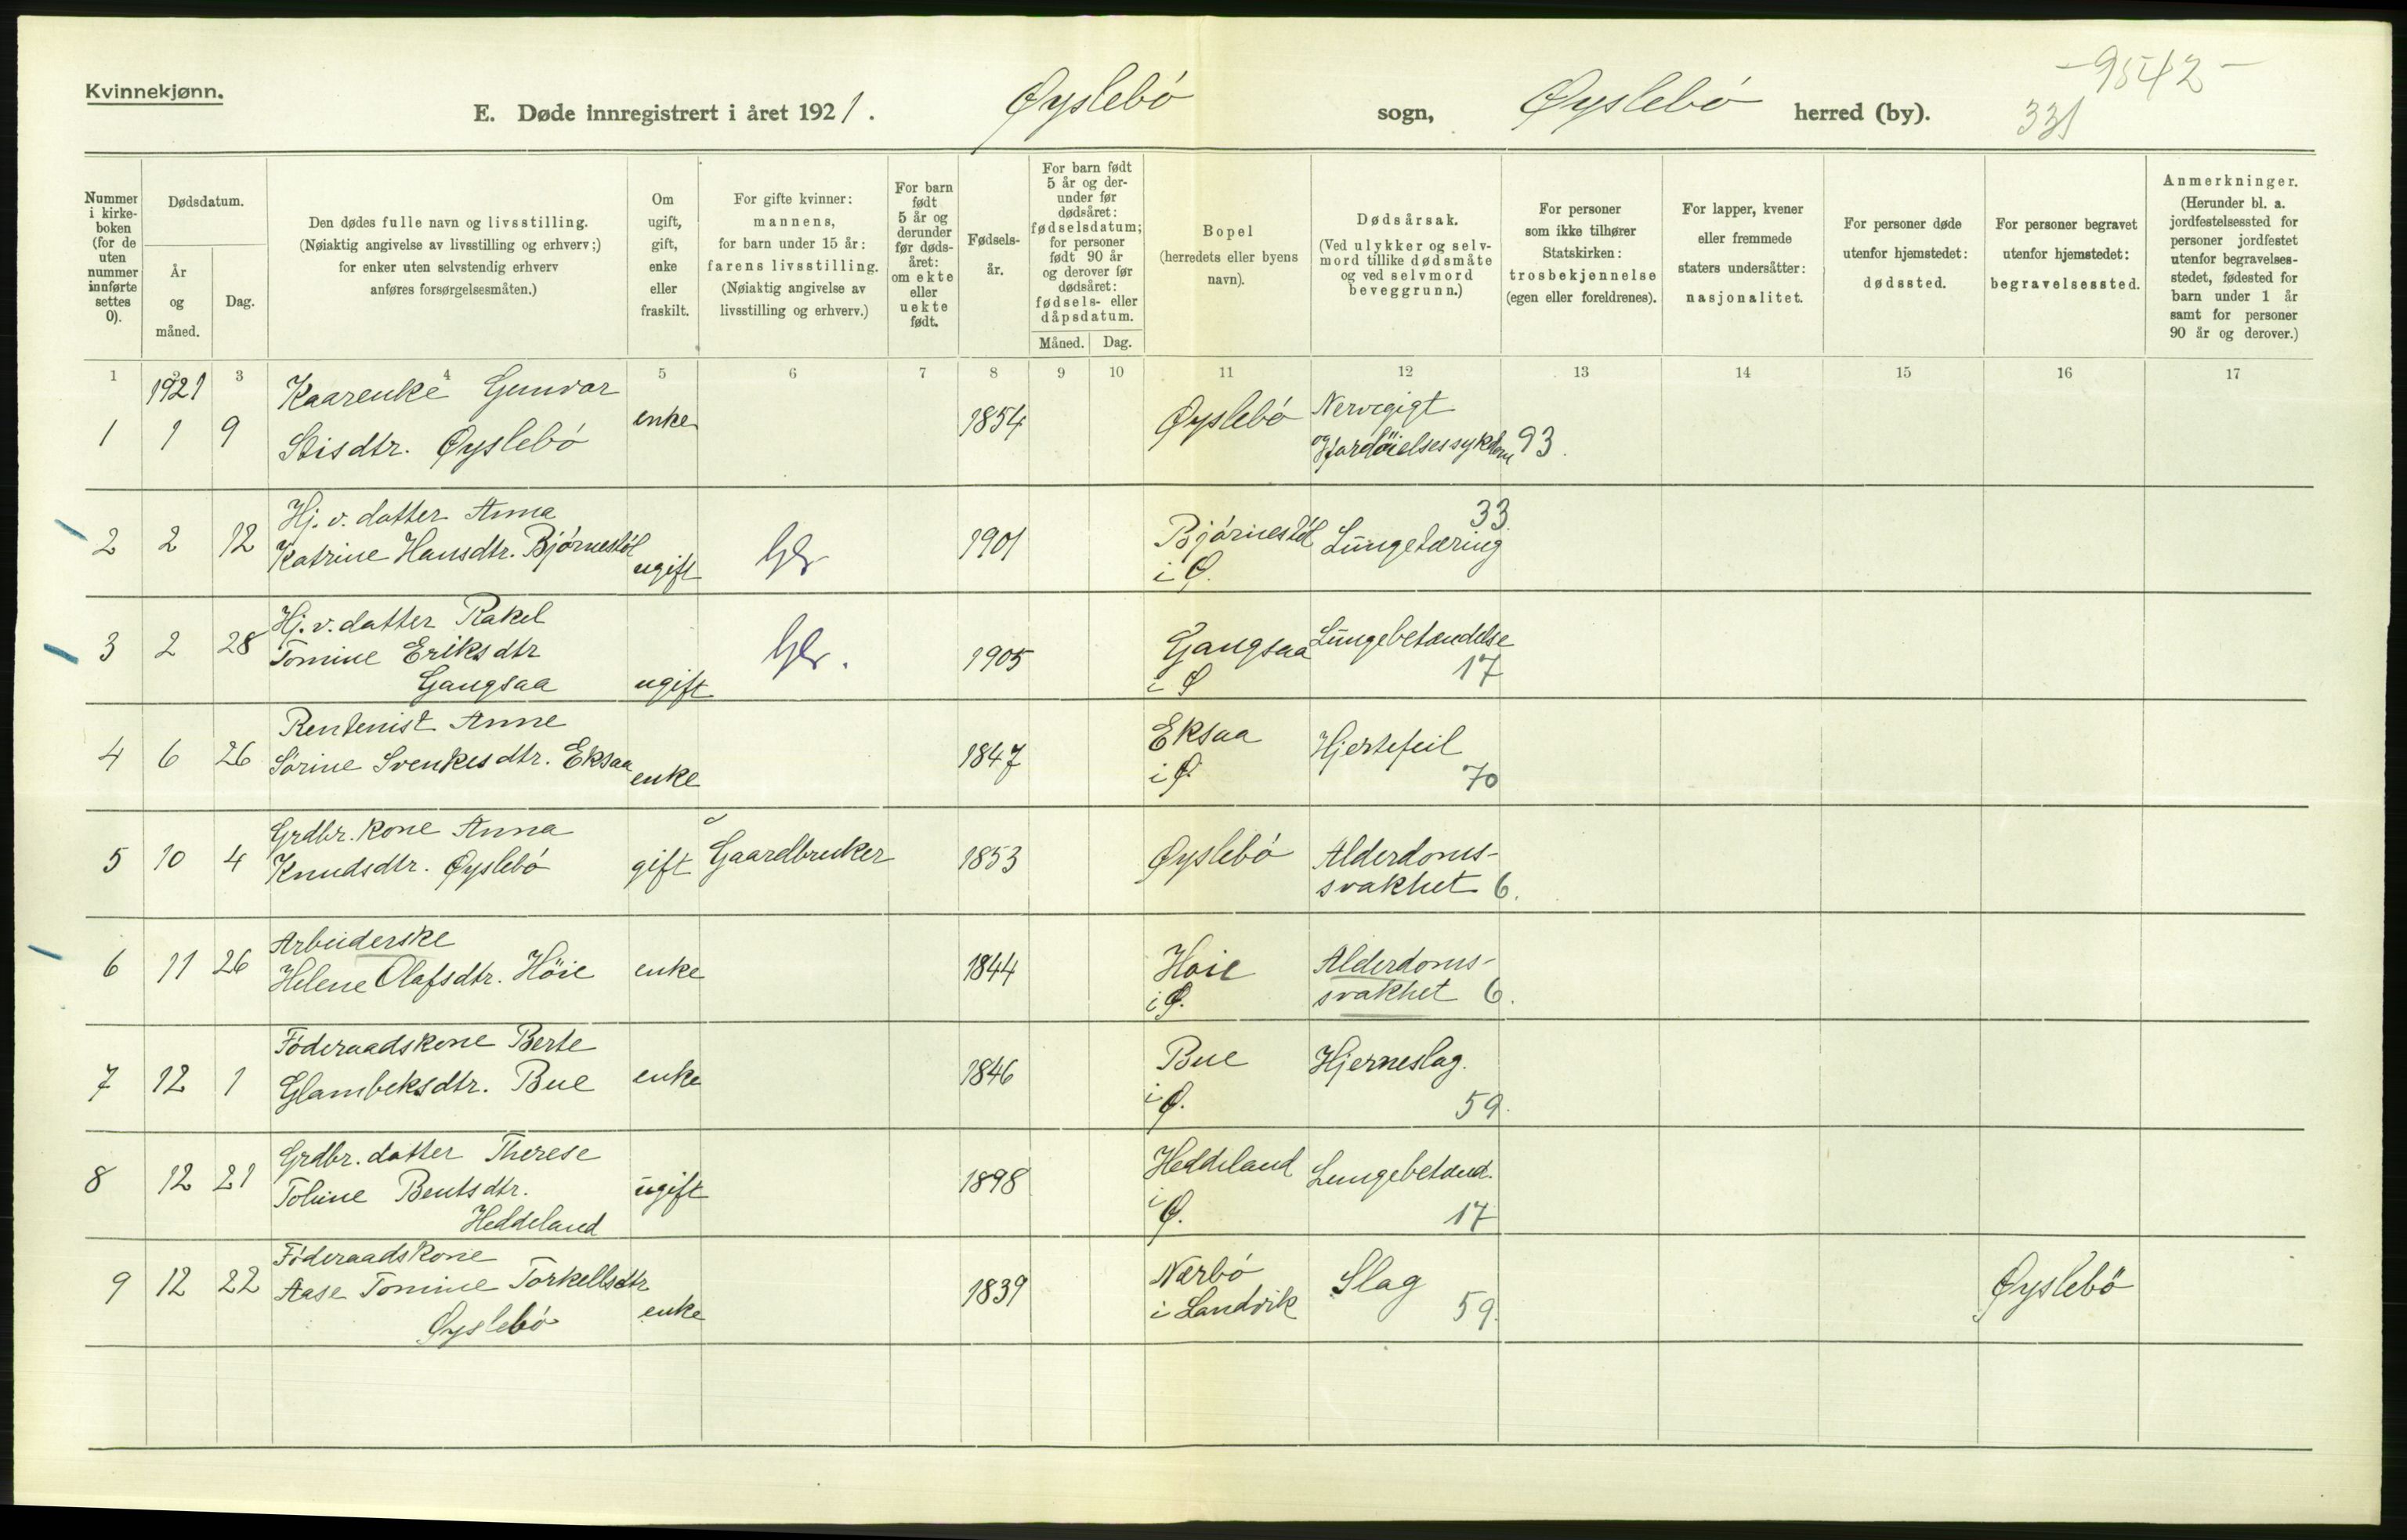 Kvinnekjønn.
E. Døde innregistrert i året 1921. Øyslebö sogn, Øyslebö herred (by).
-9542-
331
Nummer i kirke-boken (for de uten nummer innførte settes 0).
Dødsdatum.
År og måned.
Dag.
Den dødes fulle navn og livsstilling.
(Nøiaktig angivelse av livsstilling og erhverv;)
for enker uten selvstendig erhverv
anføres forsørgelsesmåten.)
Om ugift, gift, enke eller fraskilt.
For gifte kvinner:
mannens,
for barn under 15 år:
farens livsstilling.
(Nøiaktig angivelse av
livsstilling og erhverv.)
For barn født 5 år og derunder før døds-året: om ekte eller uekte født.
Fødsels-år.
For barn født 5 år og der-under før dødsåret: fødselsdatum; for personer født 90 år og derover før dødsåret: fødsels- eller dåpsdatum.
Måned. Dag.
Bopel
(herredets eller byens
navn).
Dødsårsak.
(Ved ulykker og selv-
mord tillike dødsmåte
og ved selvmord
beveggrunn.)
For personer
som ikke tilhører
Statskirken:
trosbekjennelse
(egen eller foreldrenes).
For lapper, kvener
eller fremmede
staters undersåtter:
nasjonalitet.
For personer døde
utenfor hjemstedet:
dødssted.
For personer begravet
utenfor hjemstedet:
begravelsessted.
Anmerkninger.
(Herunder bl. a.
jordfestelsessted for
personer jordfestet
utenfor begravelses-
stedet, fødested for
barn under 1 år
samt for personer
90 år og derover.)
1 2 3 4 5 6 7 8 9 10 11 12 13 14 15 16 17
1921
Kaarenke Gunvor
1 1 9 Stisdtr. Øyslebó enke 1854 Øyslebó Nervegigt
og Fordöielsessykdom 93.
Hj. v. datter Anna
2 2 12 Katrine Hansdtr. Bjørnestöl ugift 1901 Bjórnestöl i Ø. Lungetæring 33.
Hj. v. datter Rakel
3 2 28 Tomine Eriksdtr
Gangsaa ugift 1905 Gangsaa i Ø Lungebetændelse 17
Rentenist Anne
4 6 26 Sörine Svenkesdtr. Eksaa enke 1847 Eksaa i Ø. Hjertefeil 70
Grdbr. kone Anna
5 10 4 Knudsdtr. Øyslebó gift Gaardbruker 1853 Øyslebó Alderdoms-
svakhet 6.
Arbeiderske
6 11 26 Helene Olafsdtr. Höie enke 1844 Höie i Ø. Alderdoms-
svakhet 6.
Föderaadskone Berte
7 12 1 Glambeksdtr. Bue enke 1846 Bue i Ø. Hjerneslag. 59.
Grdbr. datter Therese
8 12 21 Toline Bentsdtr.
Heddeland ugift 1898 Heddeland i Ø. Lungebetænd. 17
Föderaadskone
9 12 22 Aase Tomine Torkellsdtr
Øyslebó enke 1839 Nærbó i Landvik Slag 59. Øyslebö